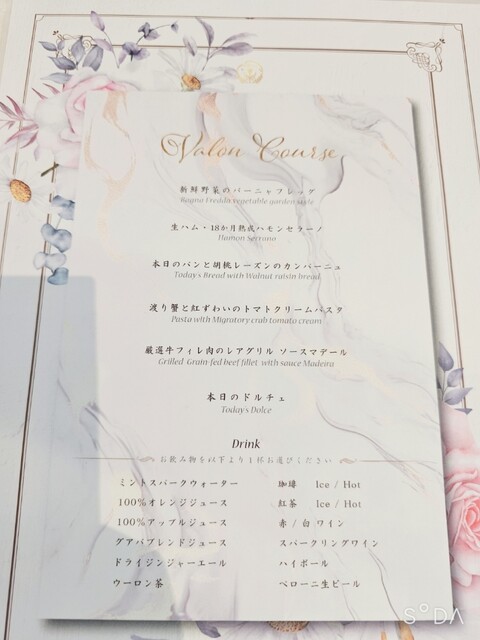 Valon Course
新鮮野菜のバーニャフレッダ
Bagna Fredda vegetable garden style
生ハム・18か月熟成ハモンセラーノ
Hamon Serrano
本日のパンと胡桃レーズンのカンパーニュ
Today's Bread with Walnut raisin bread
渡り蟹と紅ずわいのトマトクリームパスタ
Pasta with Migratory crab tomato cream
厳選牛フィレ肉のレアグリル ソースマデール
Grilled Grain-fed beef fillet with sauce Madeira
本日のドルチェ
Today's Dolce
Drink
お飲み物を以下より1杯お選びください
ミントスパークウォーター
珈琲 Ice / Hot
100%オレンジジュース
紅茶 Ice / Hot
100%アップルジュース
赤 / 白 ワイン
グアバブレンドジュース
スパークリングワイン
ドライジンジャーエール
ハイボール
ウーロン茶
ペローニ生ビール
SODA